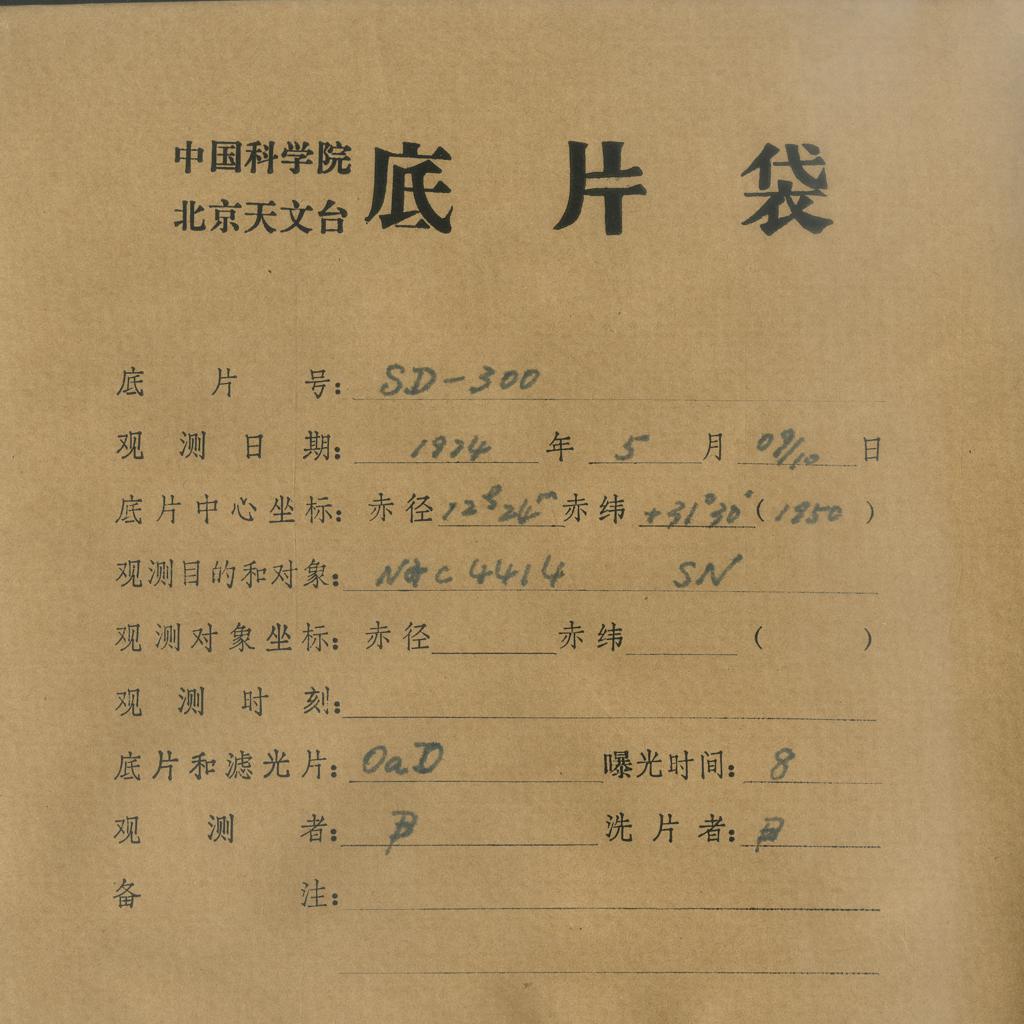 中国科学院
北京天文台
底片袋
底片号: SD-300
观测日期: 1974 年 5 月 09/10 日
底片中心坐标: 赤径 12h24m 赤纬 +31°30′ (1950)
观测目的和对象: NGC 4414 SN
观测对象坐标: 赤径 赤纬 ( )
观测时刻:
底片和滤光片: OaD 曝光时间: 8
观测者: 洗片者:
备注: